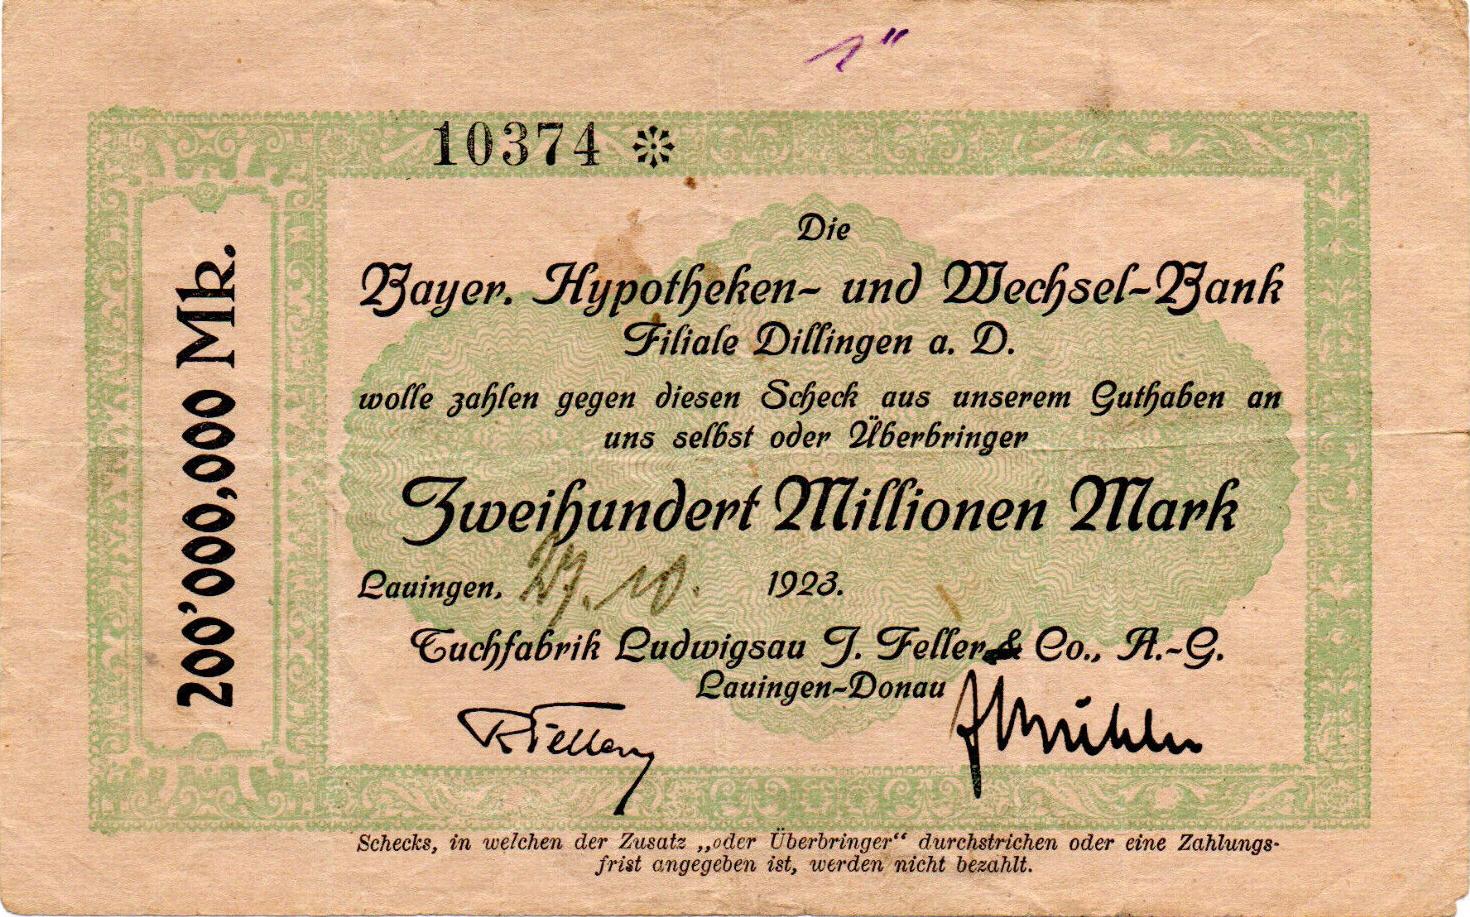 1"
10374
200'000,000 Mk.
Die
Bayer. Hypotheken- und Wechsel-Bank
Filiale Dillingen a. D.
wolle zahlen gegen diesen Scheck aus unserem Guthaben an
uns selbst oder Überbringer
Zweihundert Millionen Mark
Lauingen, 27. 10. 1923.
Tuchfabrik Ludwigsau J. Feller & Co., A.-G.
Lauingen-Donau
Schecks, in welchen der Zusatz „oder Überbringer“ durchstrichen oder eine Zahlungs-
frist angegeben ist, werden nicht bezahlt.